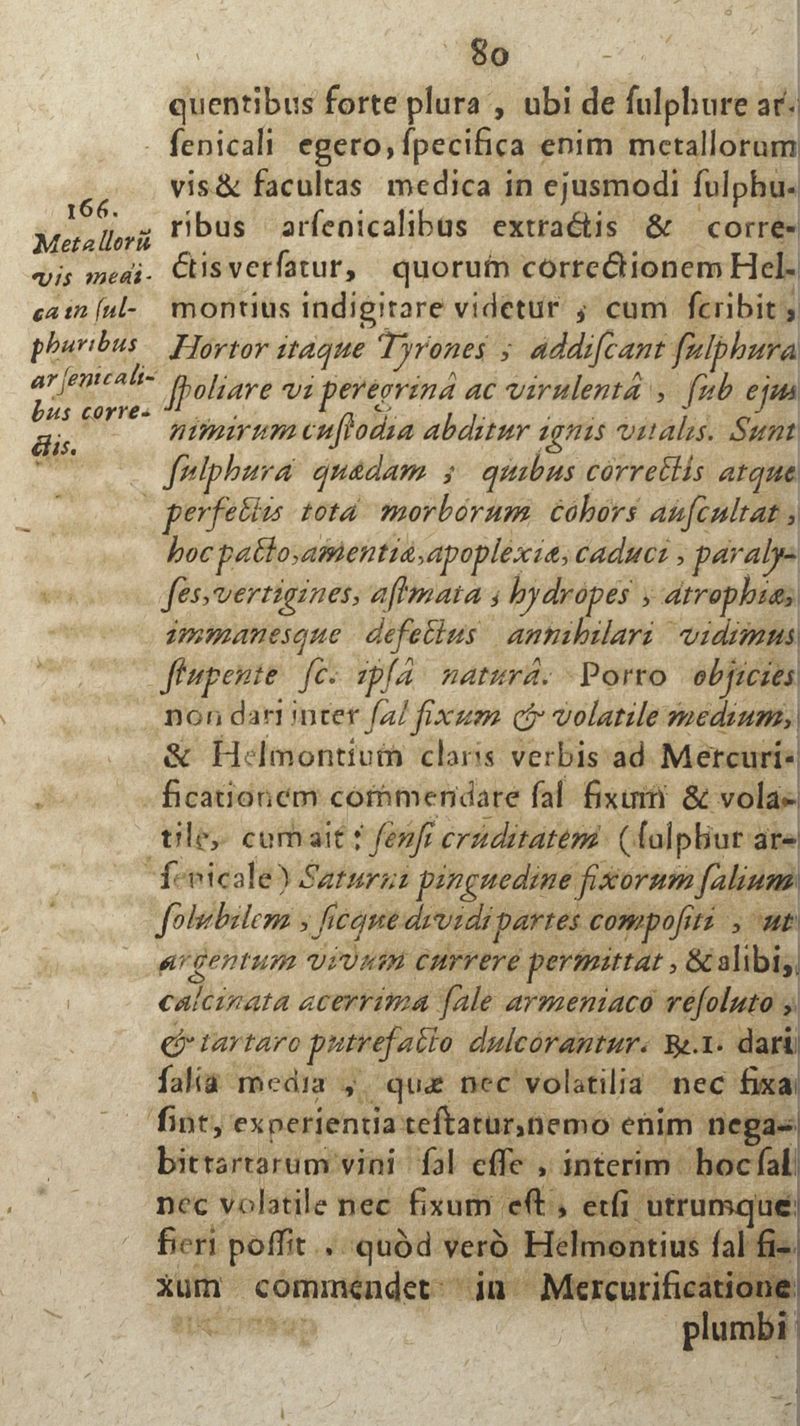 80
quentibus forte plura , ubi de ſulphure ar-
ſenicali egero, ſpecifica enim metallorum
vis & facultas medica in ejusmodi ſulphu-
ribus arſenicalibus extractis & corre-
ctis verſatur, quorum correctionem Hel-
montius indigitare videtur , cum ſcribit ,
Hortor itaque Tyrones , addiſcant ſulphura
ſpoliare vi peregrinâ ac virulentâ , ſub ejus
nimirum cuſtodia abditur ignis vitalis. Sunt
ſulphura quædam ; quibus correctis atque
perfectis tota morborum cohors auſcultat ,
hoc pacto, amentiæ, apoplexiæ, caduci , paraly-
ſes, vertigines, aſtmata , hydropes , atrophiæ,
immanesque defectus annihilari vidimus
ſtupente ſc. ipſâ naturâ. Porro objicies
non dari inter ſal fixum & volatile medium,
& Helmontium claris verbis ad Mercuri-
ficationem commendare ſal fixum & vola-
tile, cum ait : ſenſi cruditatem ( ſulphur ar-
ſenicale ) Saturni pinguedine fixorum ſalium
ſolubilem , ſicque dividi partes compoſiti , ut
argentum vivum currere permittat , & alibi,
calcinata acerrima ſale armeniaco reſoluto ,
& tartaro putrefacto dulcorantur. ℞.1. dari
ſalia media , quæ nec volatilia nec fixa
ſint, experientia teſtatur, nemo enim nega-
bit tartarum vini ſal eſſe , interim hoc ſal
nec volatile nec fixum eſt , etſi utrumque
fieri poſſit . quòd verò Helmontius ſal fi-
xum commendet in Mercurificatione
plumbi
166.
Metallorũ
vis medi-
ca in ſul-
phuribus
arſenicali-
bus corre-
ctis.